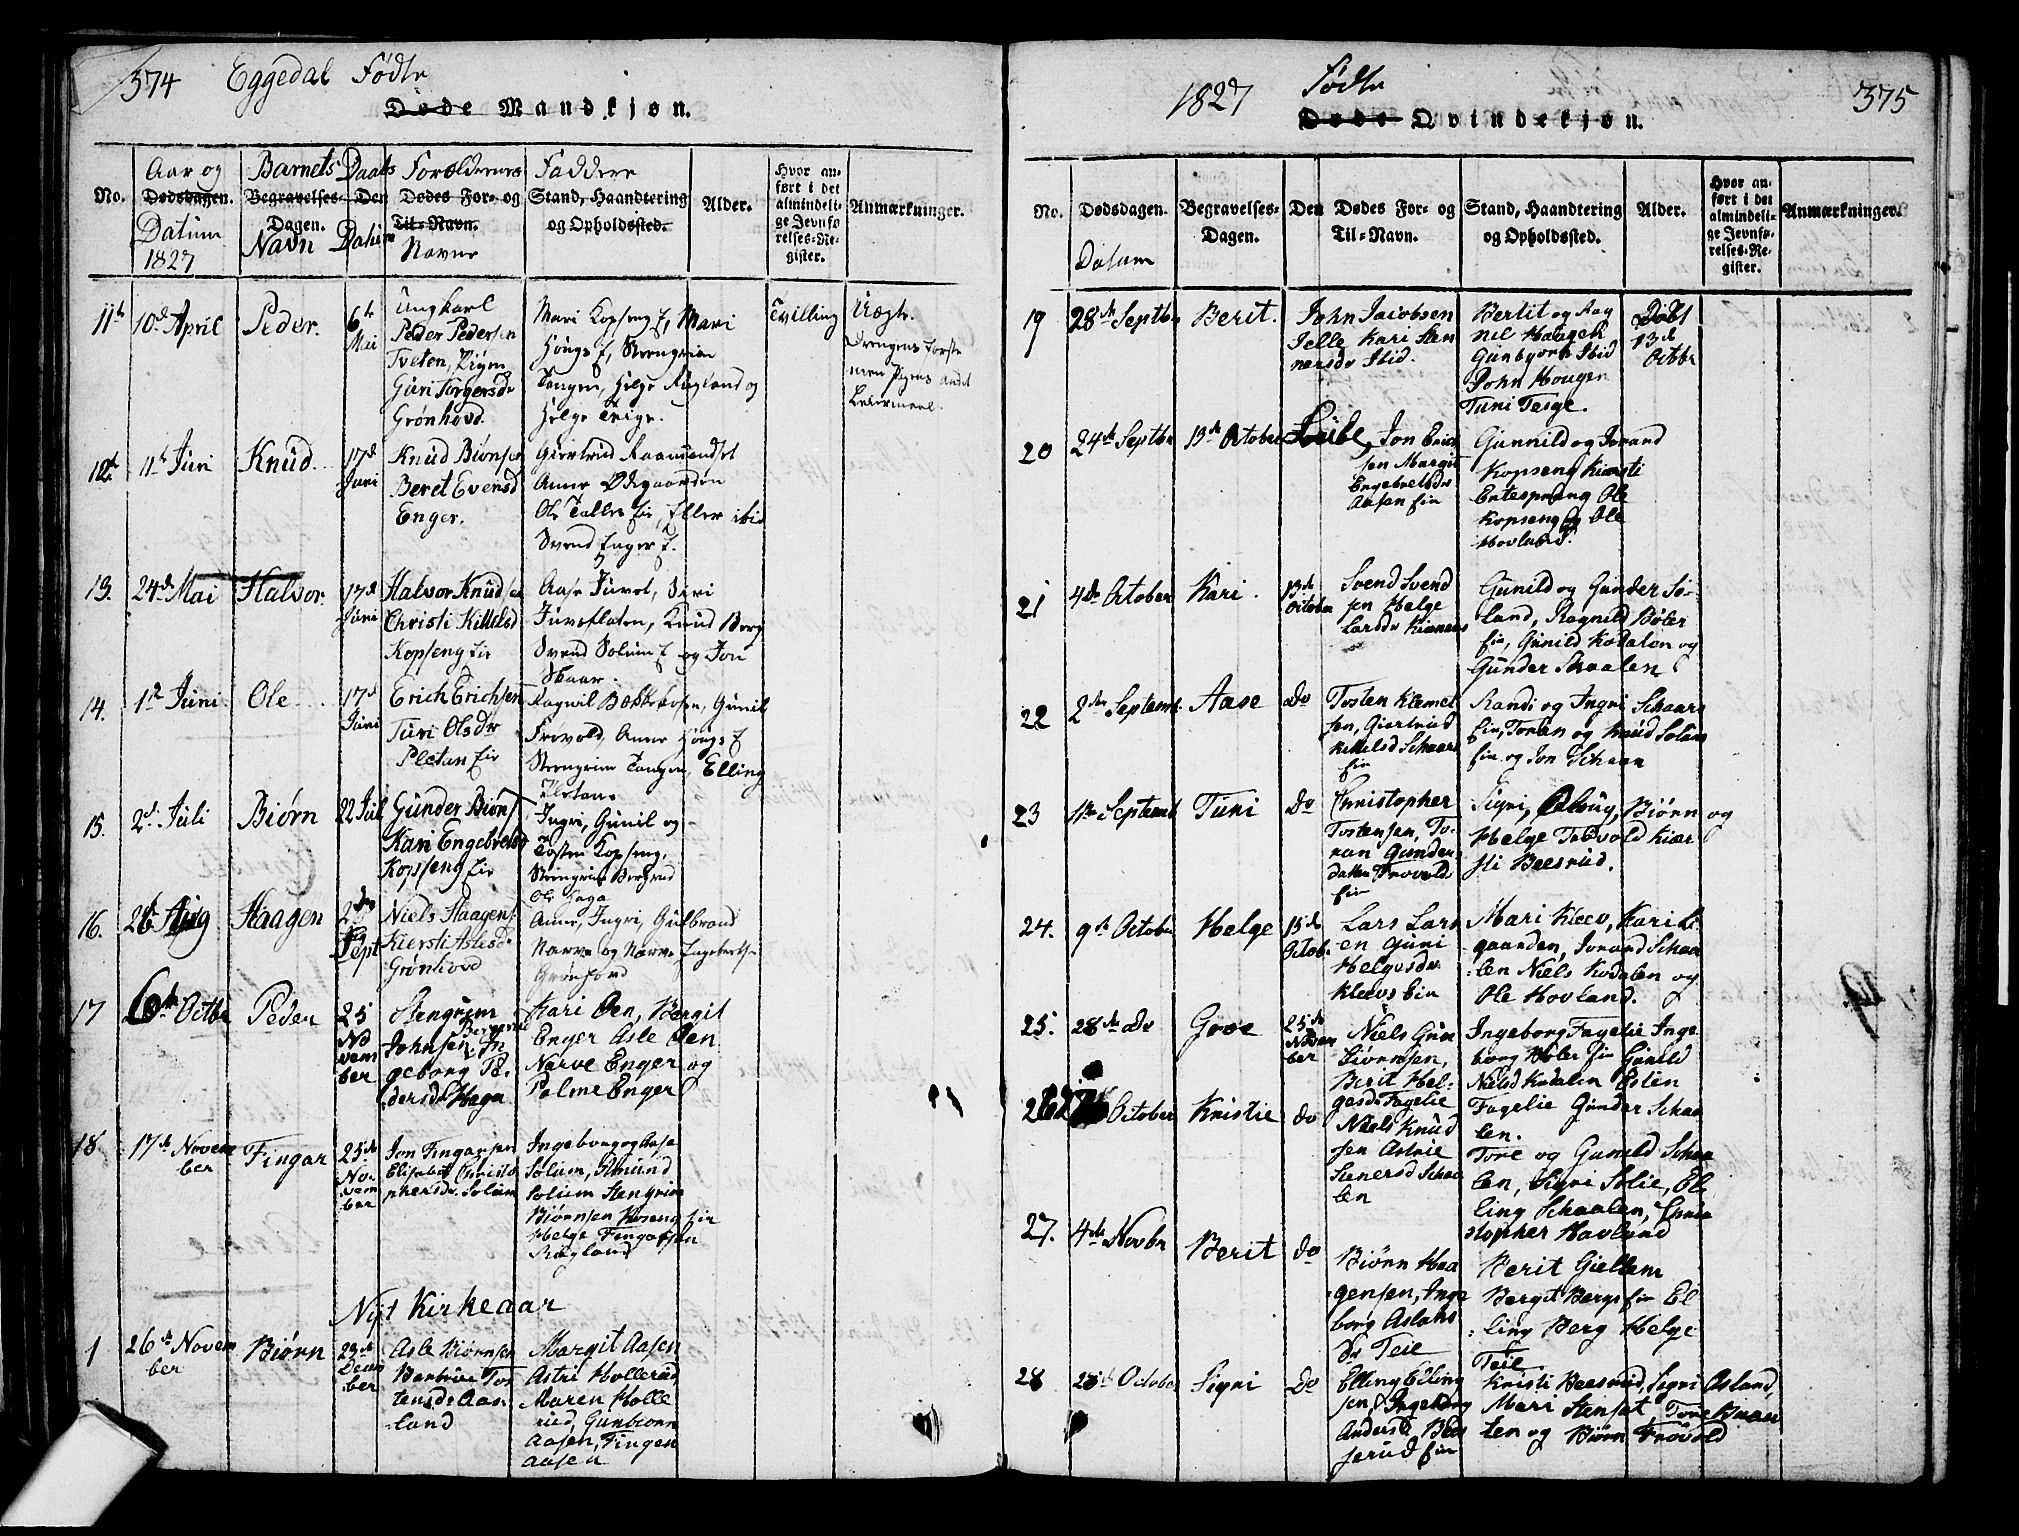 374 Eggedal Fødte
Døde Mandkjøn.
No.
Aar og
Dødsdagen.
Datum
1827
Barnets
Begravelses-
Dagen.
Navn
Daabs
Den
Datum
Forældrenes
Dødes For- og
Til-Navn.
Navne
Faddere
Stand, Haandtering
og Opholdssted.
Alder.
Hvor an-
ført i det
almindeli-
ge Jevnfø-
relses-Re-
gister.
Anmærkninger.
11te 10de April Peder. 6te Mai
Ungkarl
Peder Pedersen
Tveten, Pigen
Guri Torgersdr
Grønhovd.
Mari Kopseng E, Mari
Høugs E, Steengrim
Tangen, Helge Rugland og
Helge Teige.
Tvilling
Uægte.
Drengens første
men Pigens andet
Leiermaal.
12te 11te Juni Knud. 17de Juni
Knud Biønsen
Beret Evensd
Enger.
Giertrud Raamandset
Anne Ødegaarden
Ole Talle Eie, Eller ibid
Svend Enger E.
13. 24de Mai Halvor. 17de Juni
Halvor Knudsen
Christi Kittelsd
Kopseng Eie
Aase Juvet, Siri
Juvsflaten, Knud Berg
Svend Solum E og Jon
Skaar.
14. 1ste Juni Ole 17de Juni
Erich Erichsen
Turi Olsdr
Pletan Eie
Ragnil Bekkelosen, Gunil
Frøvold, Anne Høugs E
Steengrim Tangen, Elling
15. 2de Juli Biørn 22 Juli
Gunder Biøns
Kari Engebretsd
Kopseng Eie
Ingri, Gunil og
Tosten Kopseng,
Steengrim Bergerud
Ole Haga
16. 26 Aug Haagen 2den Sept
Niels Haagens
Kiersti Aslesd
Grønhovd
Anne, Ingri, Gulbrand
Narve og Narve Engebrets
Grønhovd
17 6te Octbr Peder 25 November
Stengrim
Johnsen Bergerud In
geborg Pe-
dersdr Haga
Kari Øen, Bergit
Enger Asle Øen
Narve Enger og
Palme Enger
18. 17de November Fingar 25de November
Jon Fingarsen
Elisabet Christo
phersdr. Solum
Ingeborg og Aase
Solum, Amund
Solum Stengrim
Biørnsen Koseng Eie
Helge Fingarsen
Rugland
Nyt Kirkeaar
1 26de November Biørn 23de December
Asle Biørnsen
Barbroe Tos
tensdr Aas-
land
Margit Aasen
Astri Hollerud
Maren Holle
rud, Gunbiørn
Aasen, Fingen
Aasen
1827 Fødte 375
Døde Qvindekjøn.
No.
Dødsdagen.
Datum
Begravelses-
Dagen.
Den
Dødes For- og
Til-Navn.
Stand, Haandtering
og Opholdssted.
Alder.
Hvor an-
ført i det
almindeli-
ge Jevnfø-
relses-Re-
gister.
Anmærkninger.
19 28de Septbr Berit.
John Jacobsen
Jelle Kari Sten
nersdr Ibid.
Bertit og Rag
nil Haugen
Gunbjørn Ibid
John Hougen
Turi Teige.
Døbt
13de
Octbr
20 24de Septbr 13de October Lribe,
Jon Erich
sen Margit
Engebretsdr
Aasen Eie
Gunnild og Jorand
Kopseng Kiersti
Entesprang Ole
Kopseng og Ole
Hovland.
21 4de October Kari. 13de October
Svend Svend
sen Helge
Larsdr Kiennaas
Gunild og Gunder So-
land, Ragnild Bøler
Eie, Gunild Kodalen og
Gunder Skaalen
22 2den Septembr Aase do
Tosten Klemet
sen, Giertrud
Kittelsd Schaars
Eie
Randi og Ingri Schaars
Eie, Torsten og Knud Solum
Eie og Jon Schaar
23 11te Septembr Turi do
Christopher
Tostensen, To-
ran Gunders
datter Frøvolds
Eie
Sigri, Aslaug, Biørn og
Helge Frøvold Kier
sti Beesrud.
24. 9de October Helge 15de October
Lars Lars
en Guri
Helgesdr
Kleevs Eie
Mari Kleev, Kari Li-
gaarden, Jorand Schaa
len Niels Kodalen og
Ole Hovland.
25. 28de do Groe 25de November
Niels Gun
biørnsen,
Berit Hel-
gesdr Fagelie
Ingeborg Fagelie Inge
borg Bøler Eie Gunild
Nielsd Kodalen Esten
Fagelie Gunder Schaa
len.
26 27de October Kristie do
Niels Knud
sen Astrie
Stenersd Schaa
len
Tore og Gunild Schaa
len, Sigri Solie, El
ling Schaalen, Chri
stopher Havland
27. 4de Novbr Berit do
Biørn Haa
gensen, Inge
borg Aslaks
dr Teie
Berit Giellum
Bergit Bergs Eie El
ling Berg Helge
Teie
28 28de October Sigri do
Elling Elling
sen, Ingeborg
Andersdr Bees
serud Eie
Kristi Beesrud, Sigri Asland,
Mari Stenset Tore Braa
ten og Biørn Frøvold